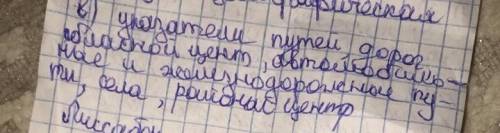 графических
в) указатели путей дорог
областной цент, автомобиль-
ные и железнодорожные пу-
ти, села, районнас центр